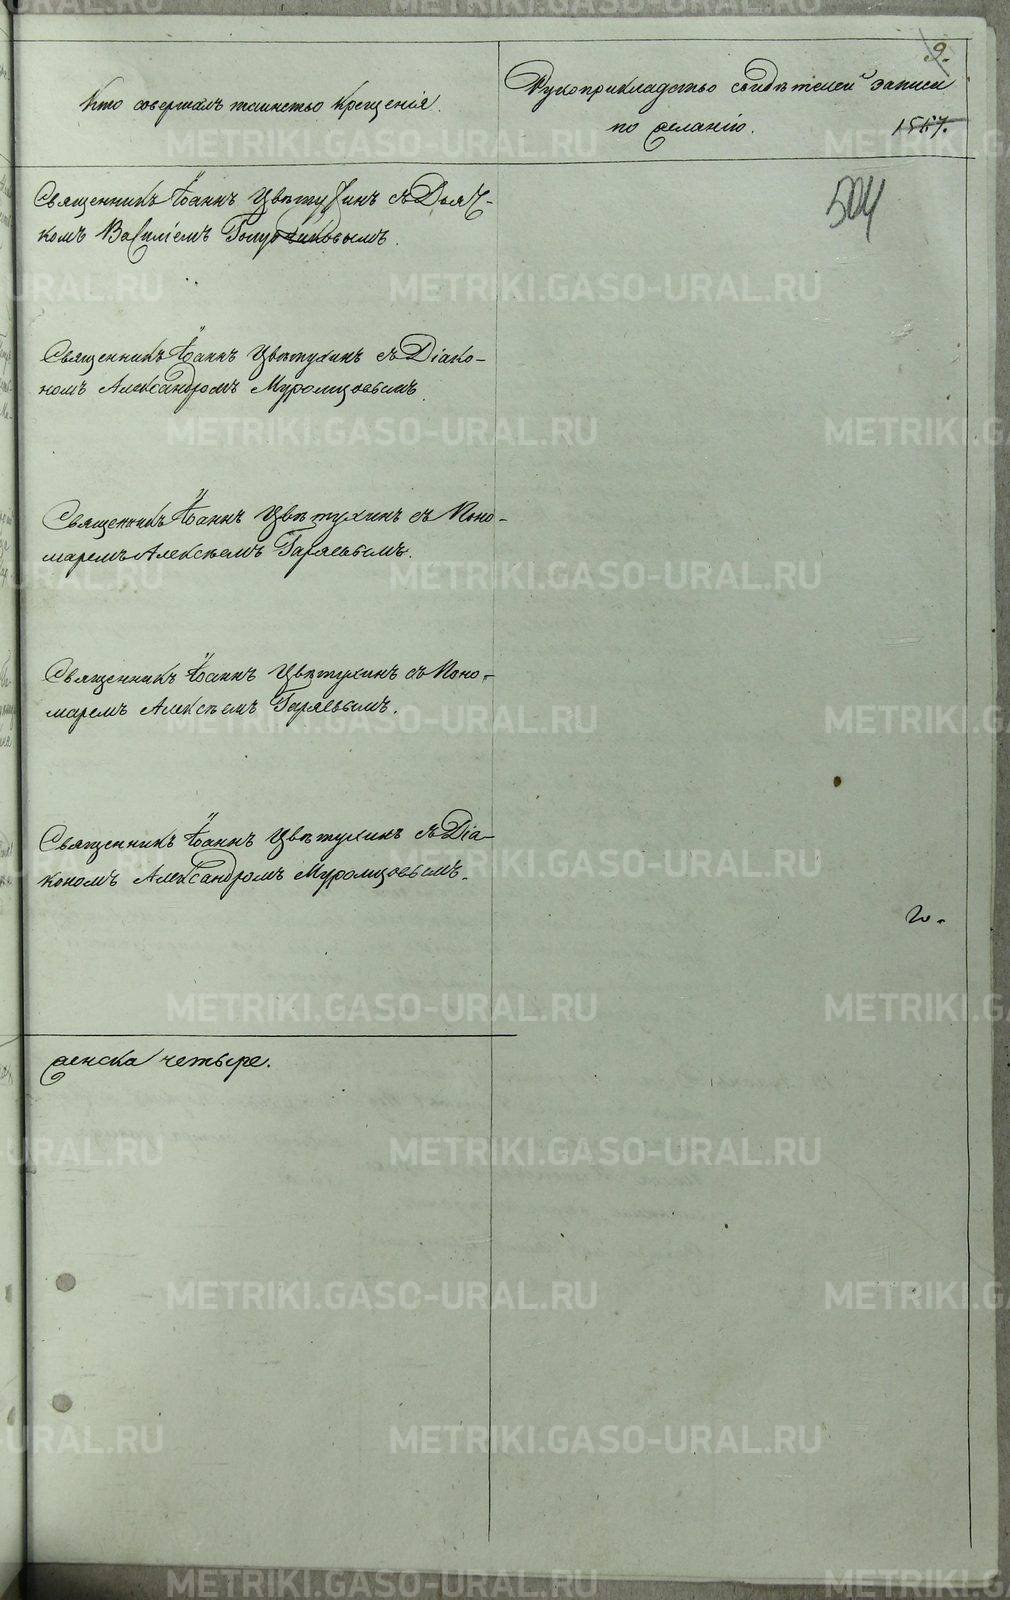 9.
Кто совершалъ таинство крещенія.
Рукоприкладство свидѣтелей записи
по желанію.
1517.
504
Священникъ Іоаннъ Цвѣтухинъ съ Дьяч-
комъ Василіемъ
Священникъ Іоаннъ Цвѣтухинъ съ Діако-
номъ Александромъ Муромцовымъ.
Священникъ Іоаннъ Цвѣтухинъ съ Поно-
маремъ Алексѣемъ Гаряевымъ.
Священникъ Іоаннъ Цвѣтухинъ съ Поно-
маремъ Алексѣемъ Гаряевымъ.
Священникъ Іоаннъ Цвѣтухинъ съ Діа-
кономъ Александромъ Муромцовымъ.
женска четыре.
METRIKI.GASO-URAL.RU